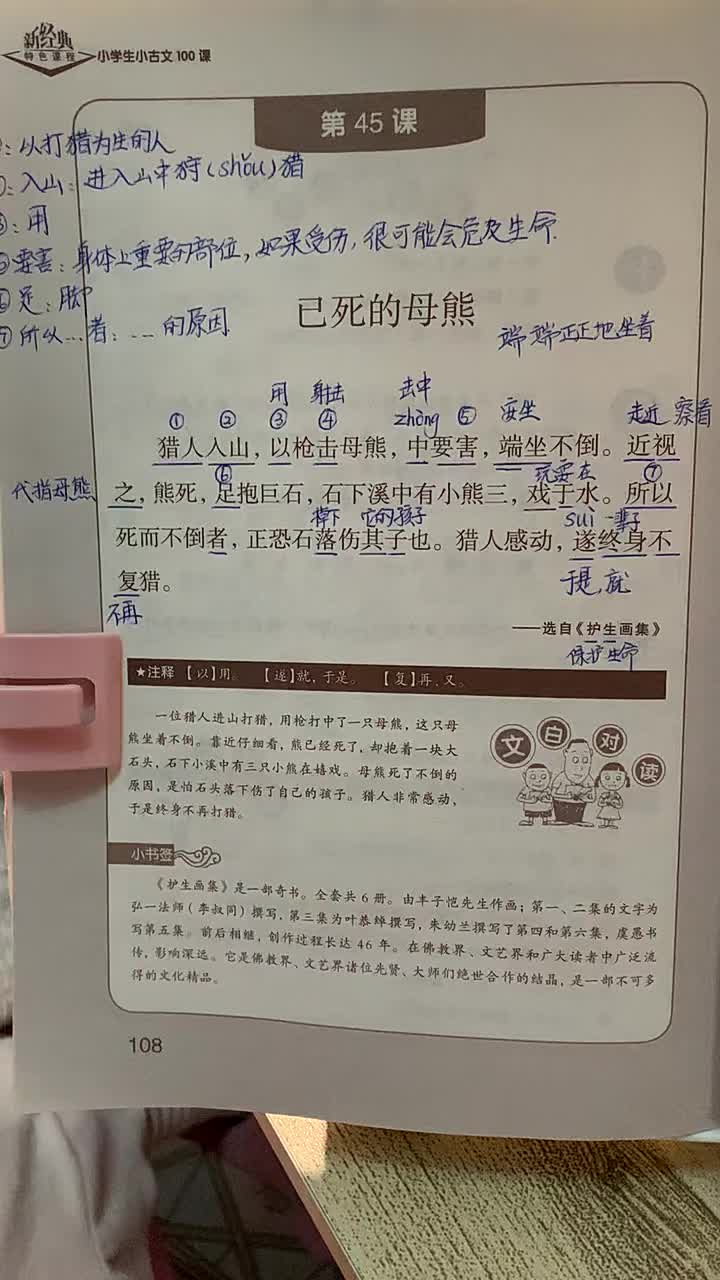 新经典
特色课程
小学生小古文100课
第45课
：以打猎为生的人
：入山：进入山中狩（shòu）猎
：用
要害：身体上重要的部位，如果受伤，很可能会危及生命.
⑥足：脚
⑦所以…者：……的原因
已死的母熊
端端正正地坐着
用 射击 击中
① ② ③ ④ zhòng ⑤ 安坐 走近 察看
猎人入山，以枪击母熊，中要害，端坐不倒。近视
代指母熊 ⑥ 玩耍 在 ⑦
之，熊死，足抱巨石，石下溪中有小熊三，戏于水。所以
掉下 它的孩子 suì 一辈子
死而不倒者，正恐石落伤其子也。猎人感动，遂终身不
于是，就
复猎。
不再
——选自《护生画集》
保护生命
★注释 【以】用。 【遂】就，于是。 【复】再、又。
一位猎人进山打猎，用枪打中了一只母熊，这只母
熊坐着不倒。靠近仔细看，熊已经死了，却抱着一块大
石头，石下小溪中有三只小熊在嬉戏。母熊死了不倒的
原因，是怕石头落下伤了自己的孩子。猎人非常感动，
于是终身不再打猎。
文白对读
小书签
《护生画集》是一部奇书。全套共6册。由丰子恺先生作画；第一、二集的文字为
弘一法师（李叔同）撰写，第三集为叶恭绰撰写，朱幼兰撰写了第四和第六集，虞愚书
写第五集。前后相继，创作过程长达46年。在佛教界、文艺界和广大读者中广泛流
传，影响深远。它是佛教界、文艺界诸位先贤、大师们绝世合作的结晶，是一部不可多
得的文化精品。
108